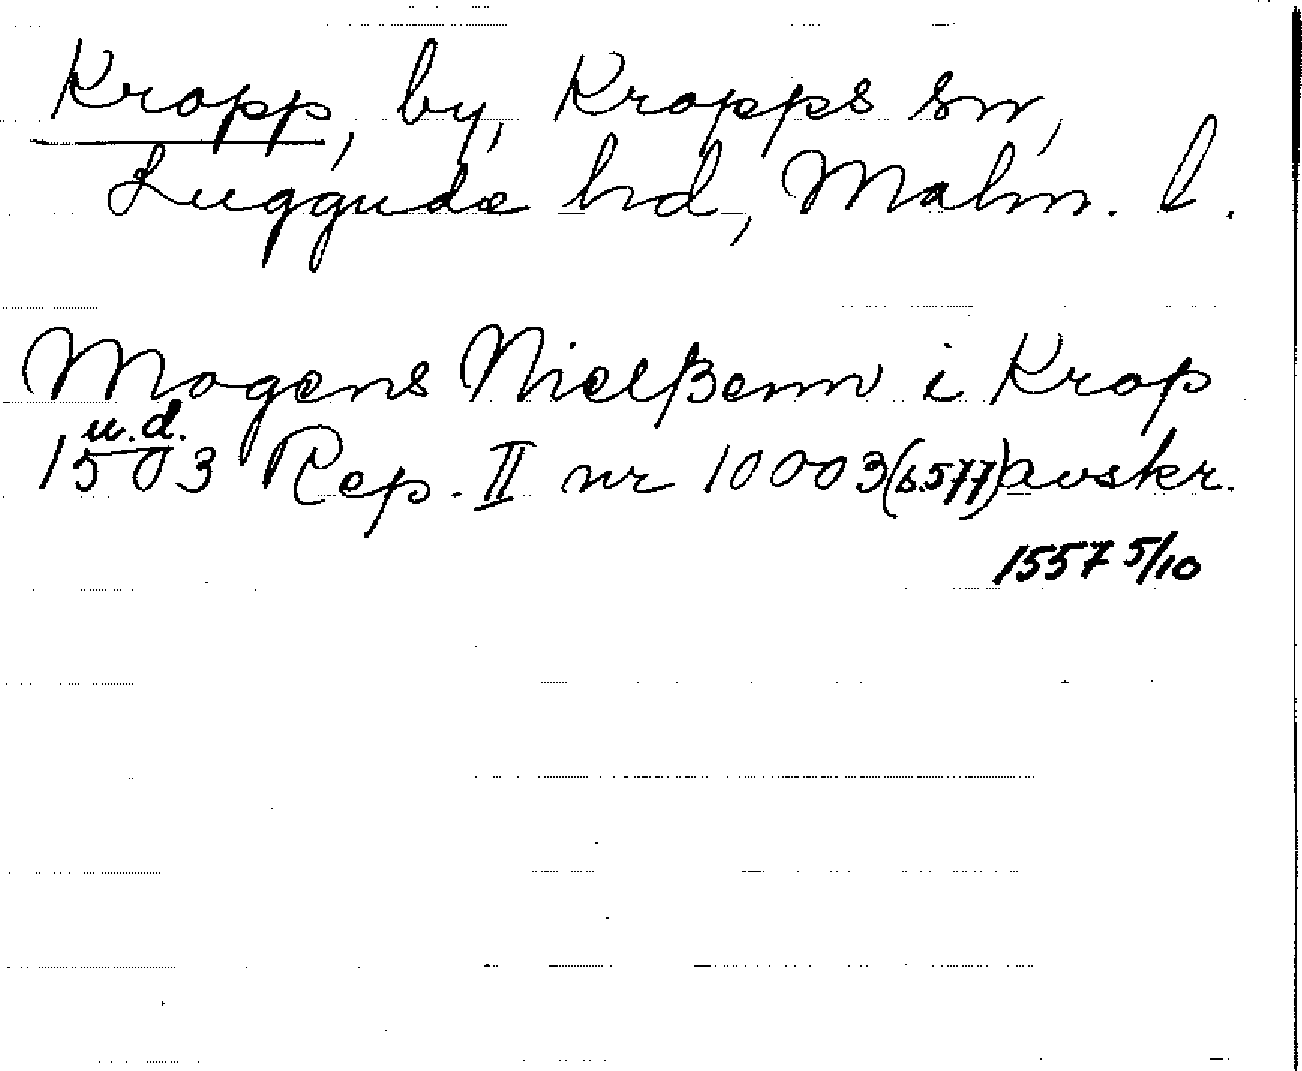 Kropp, by, Kropps sn,
Luggude hd, Malm. l.
Mogens Nielßenn i Krop
u.d.
1503 Rep. II nr 10003 (s. 577) avskr.
1557 5/10